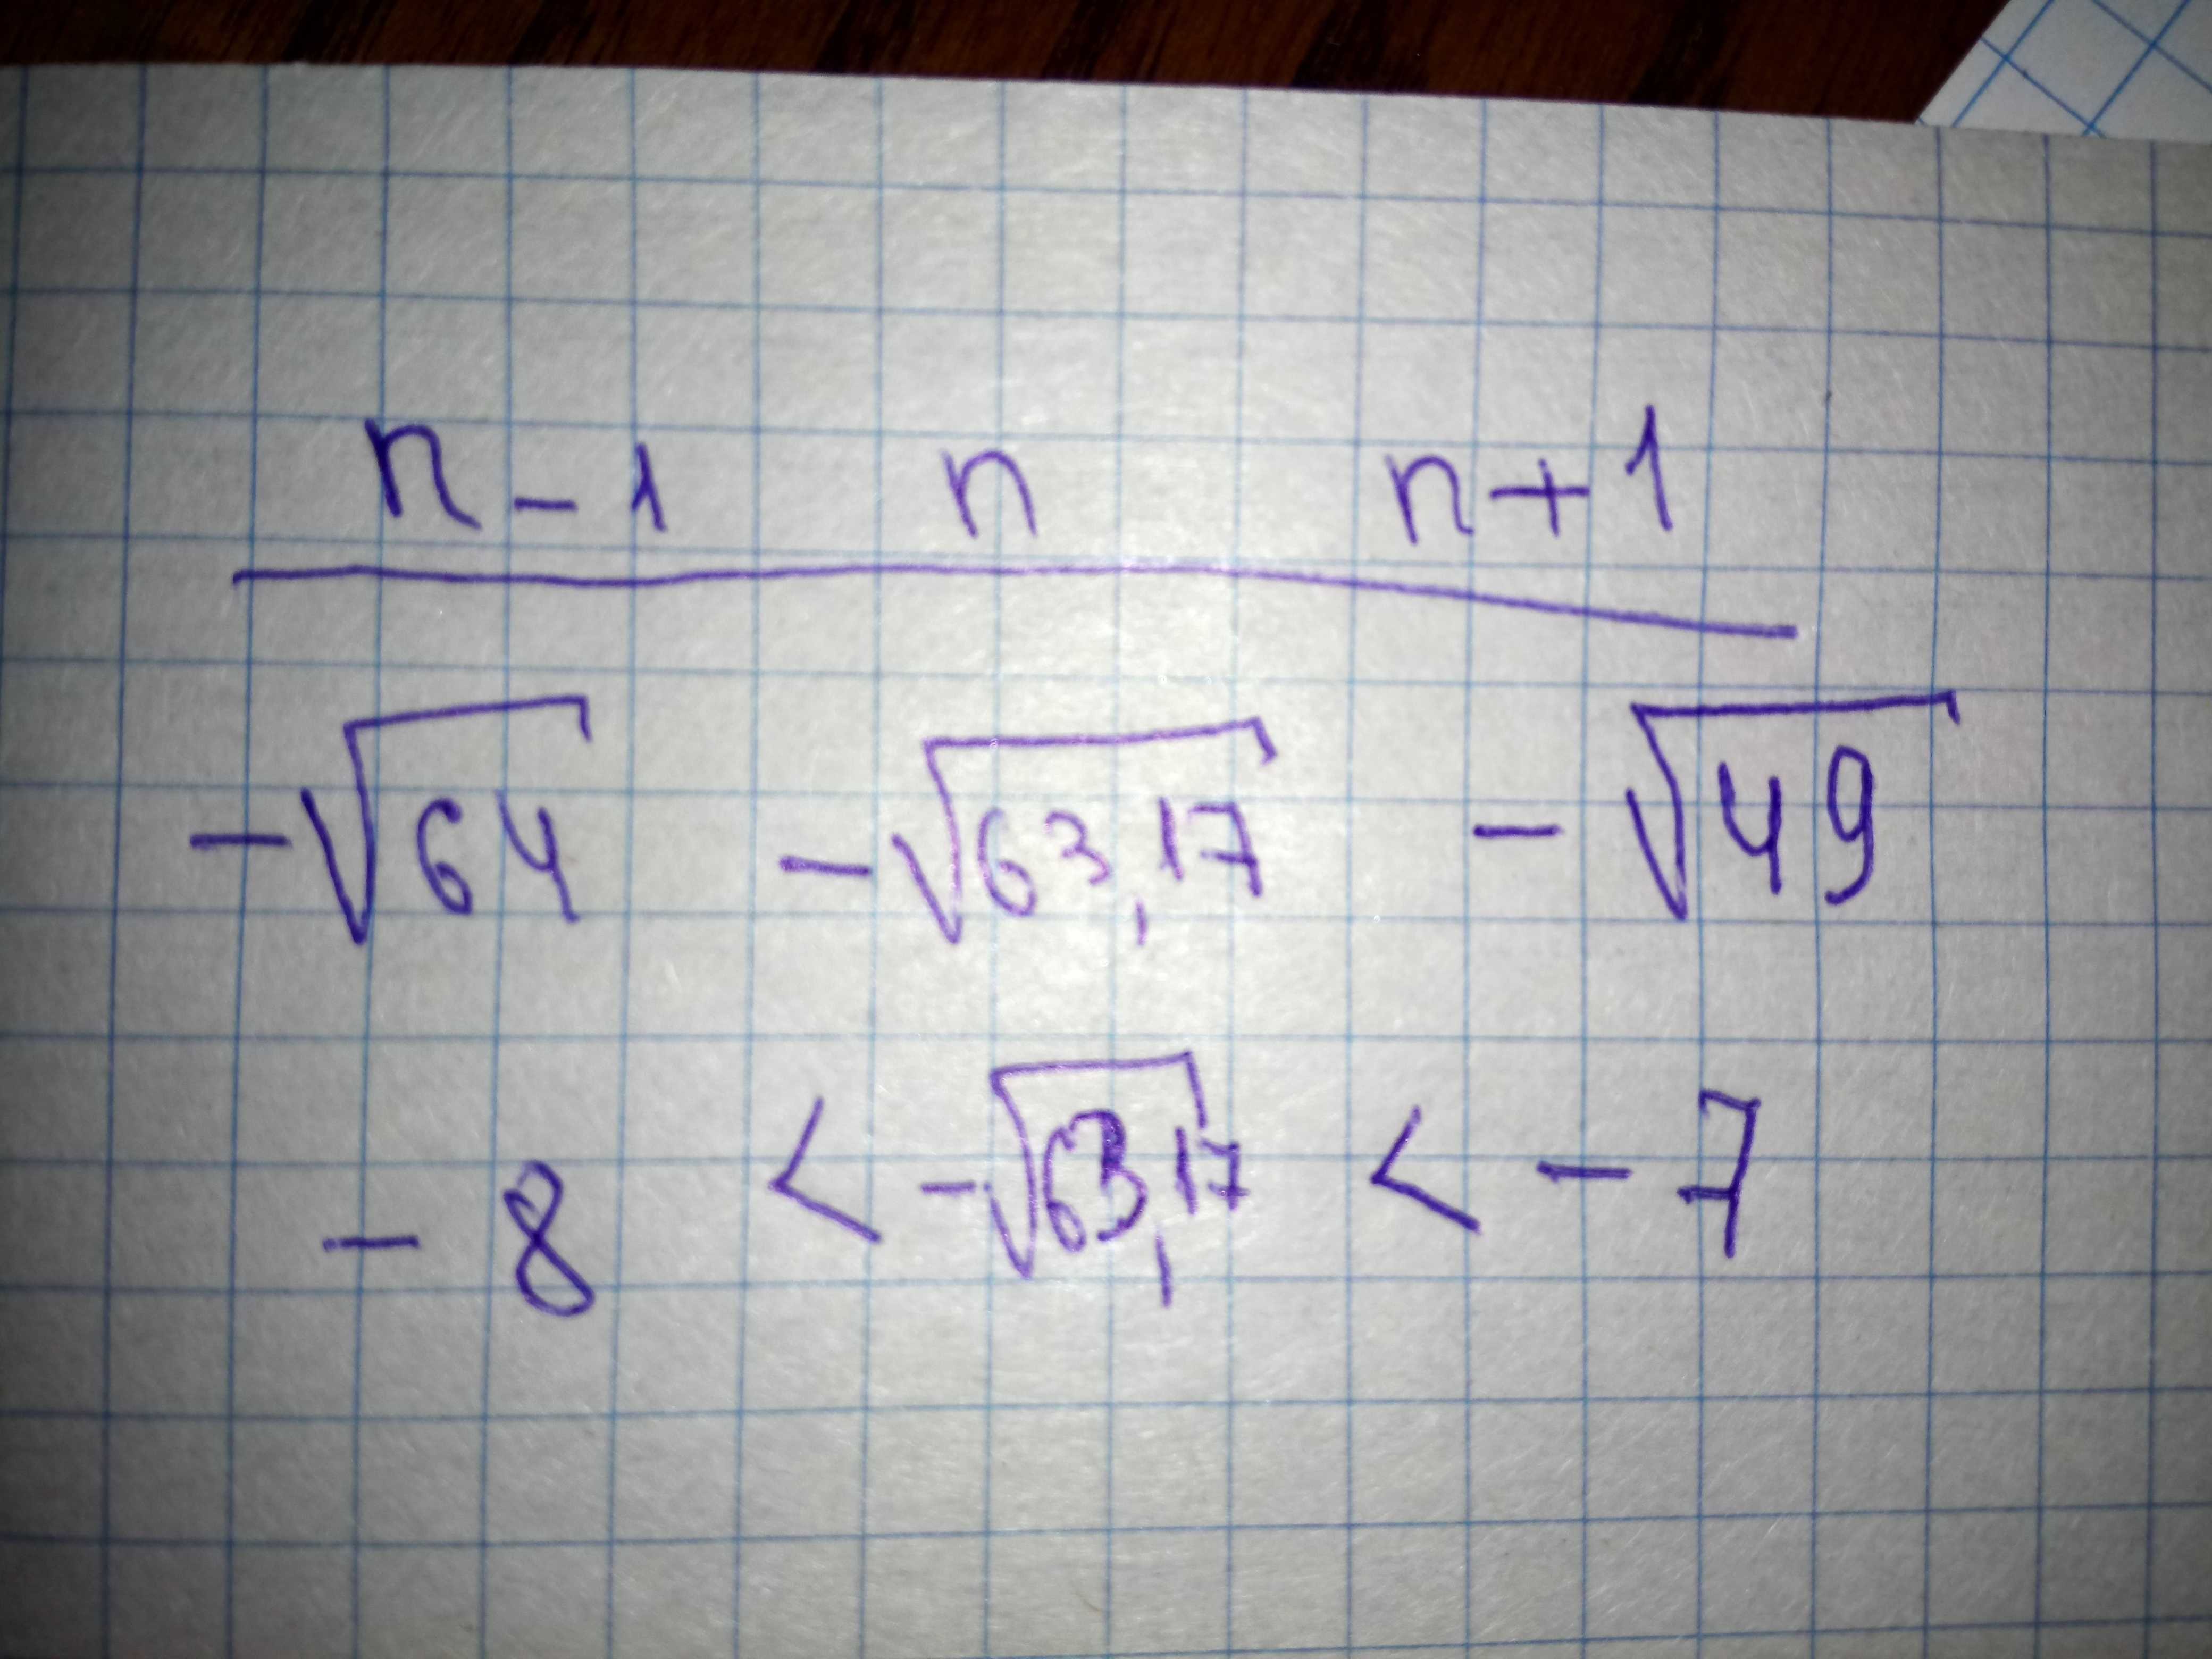 n-1 n n+1
-√64 -√63,17 -√49
-8 < -√63,17 < -7